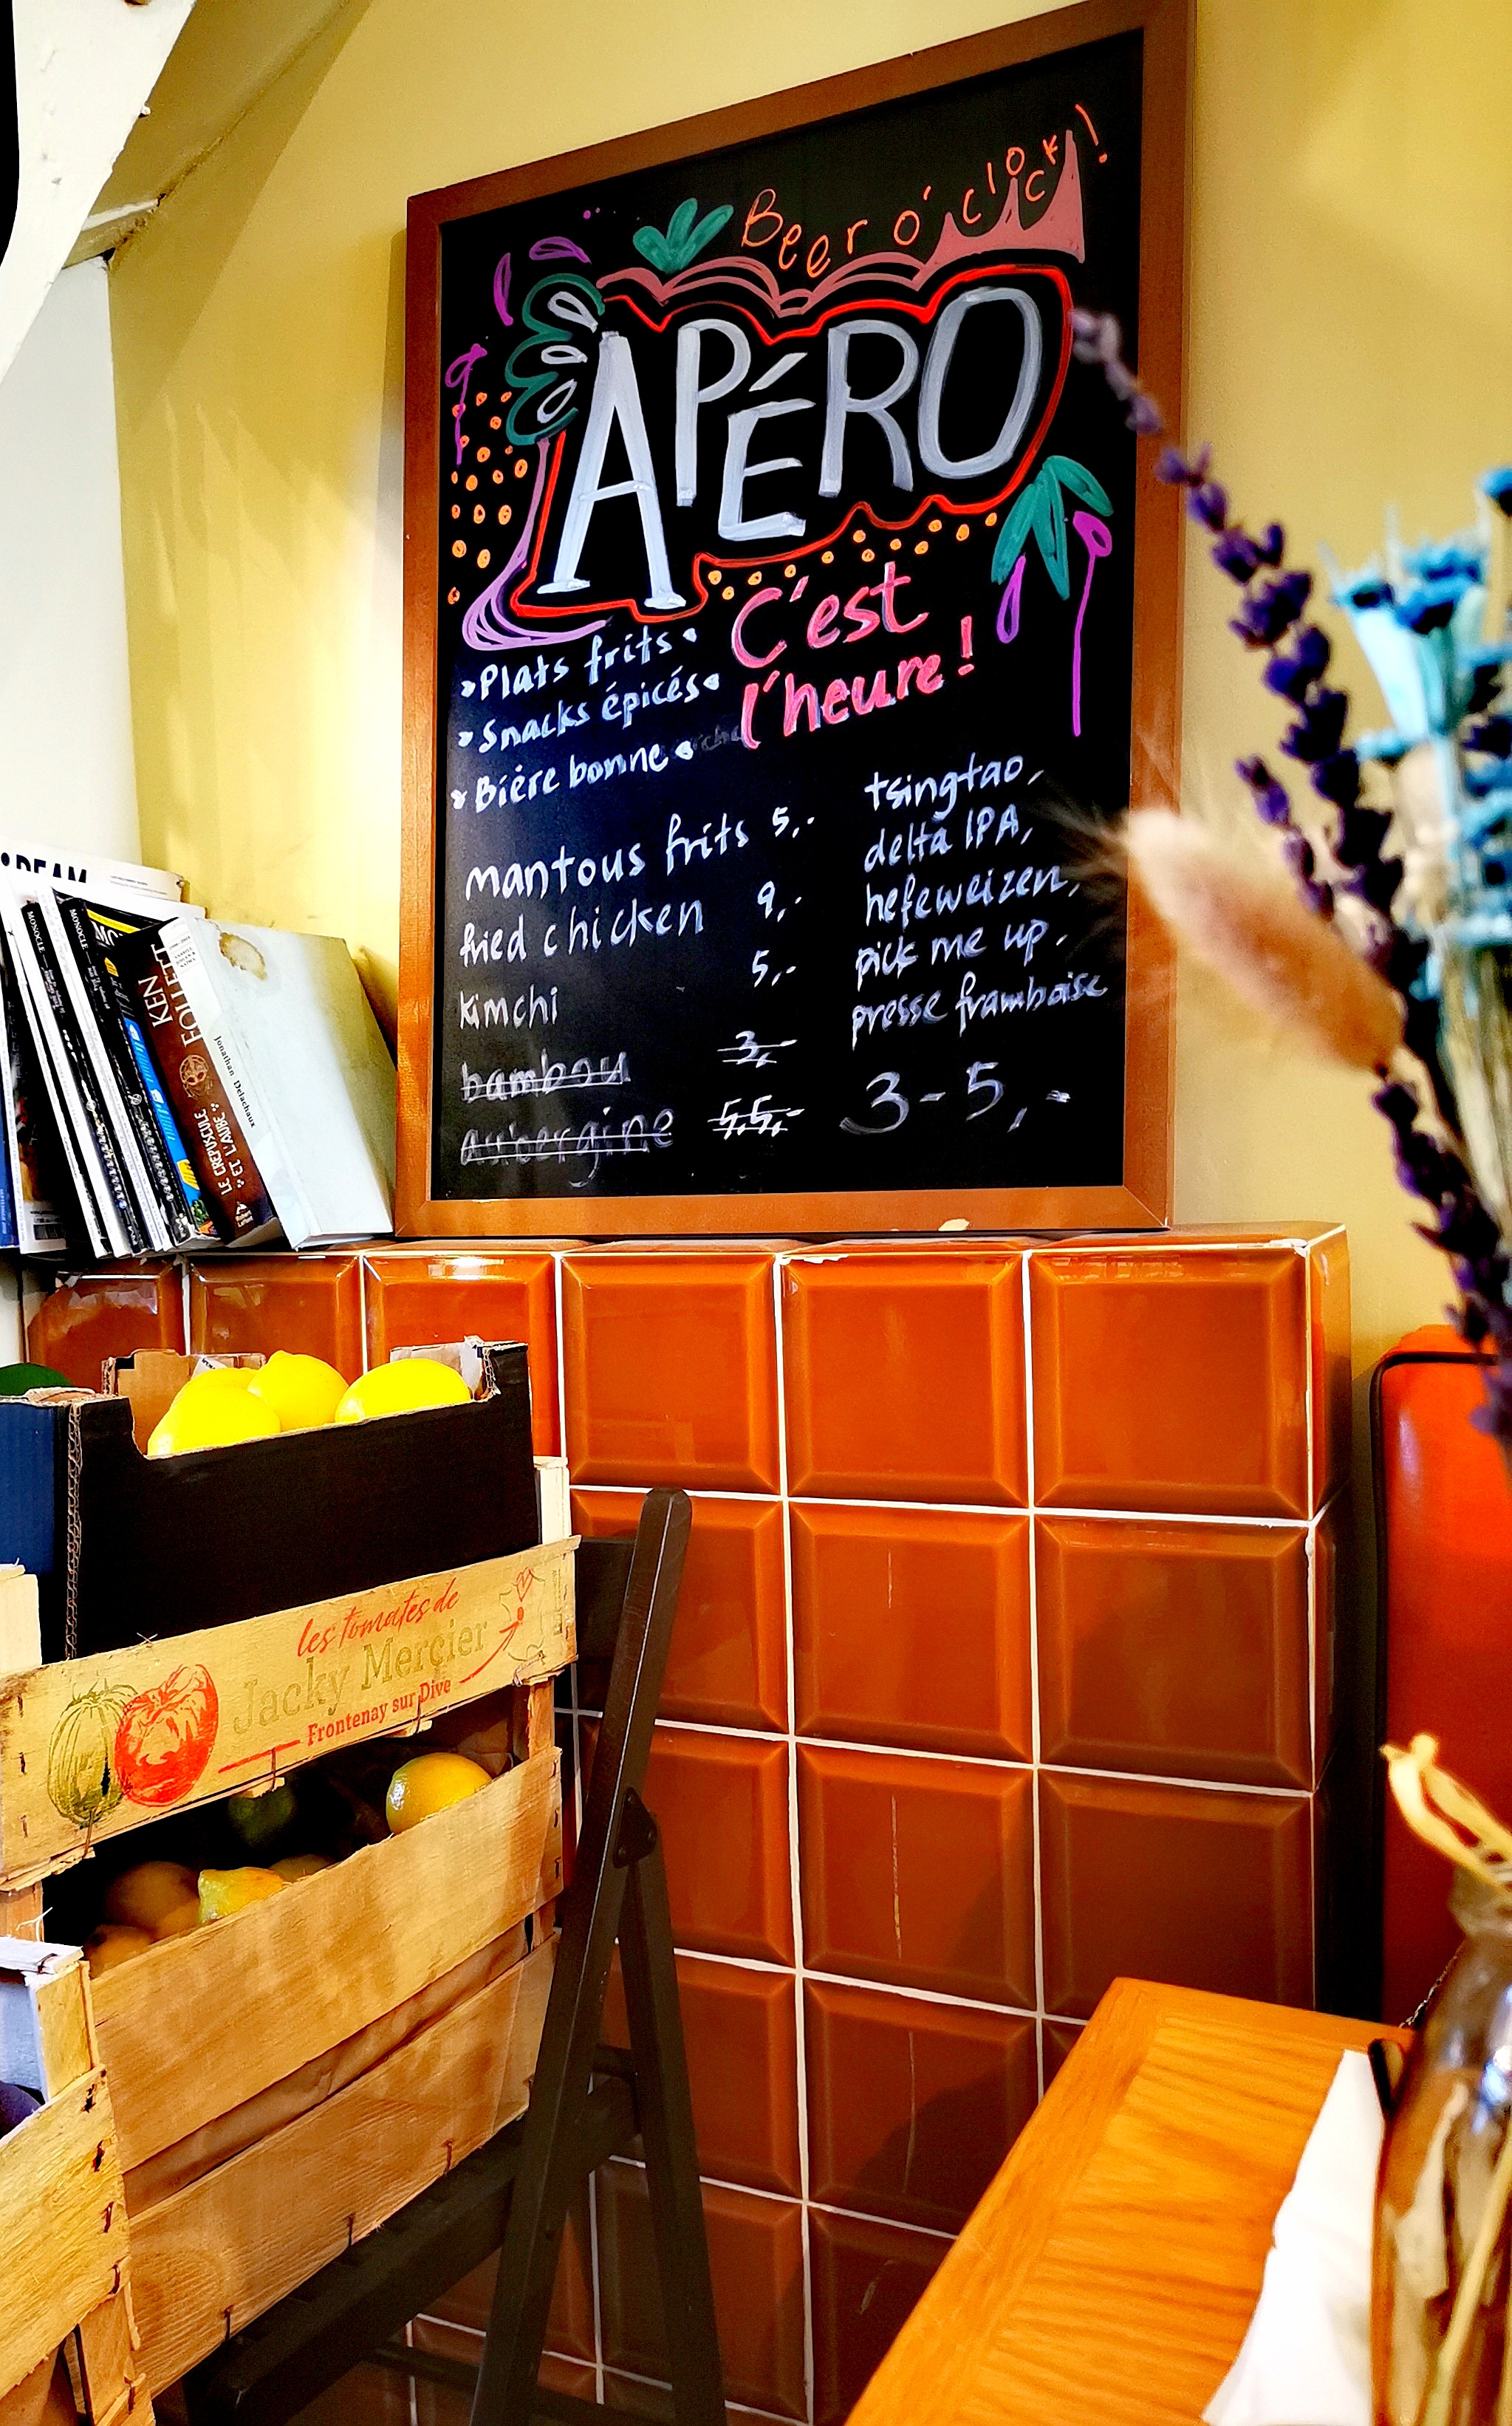 Beer o'clock!
APÉRO
C'est
l'heure!
Plats frits
Snacks épicés
Bière bonne
mantous frits 5,-
fried chicken 9,-
kimchi 5,-
bambou 3,-
aubergine 5,5,-
tsingtao,
delta IPA,
hefeweizen,
pick me up,
presse framboise
3-5,-
MONOCLE
MONOCLE
KEN
FOLLETT
LE CRÉPUSCULE
ET L'AUBE
Jonathan Delachaux
les tomates de
Jacky Mercier
Frontenay sur Dive